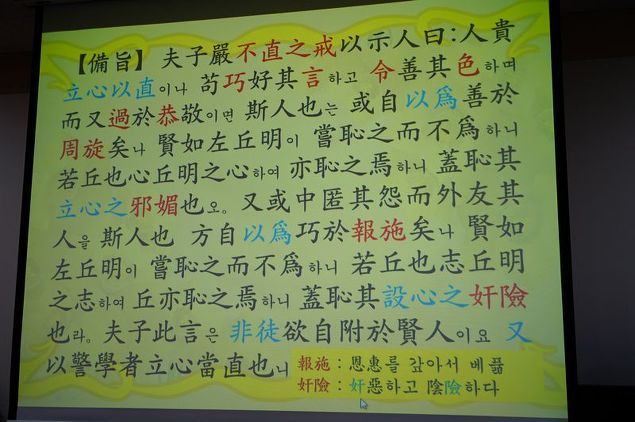 【備旨】 夫子嚴不直之戒以示人曰:人貴
立心以直이나 苟巧好其言하고 令善其色하며
而又過於恭敬이면 斯人也는 或自以爲善於
周旋矣나 賢如左丘明이 嘗恥之而不爲하니
若丘也心丘明之心하여 亦恥之焉하니 蓋恥其
立心之邪媚也오。又或中匿其怨而外友其
人을 斯人也 方自以爲巧於報施矣나 賢如
左丘明이 嘗恥之而不爲하니 若丘也志丘明
之志하여 丘亦恥之焉하니 蓋恥其設心之奸險
也라。夫子此言은 非徒欲自附於賢人이요 又
以警學者立心當直也니
報施 : 恩惠를 갚아서 베풂
奸險 : 奸惡하고 陰險하다